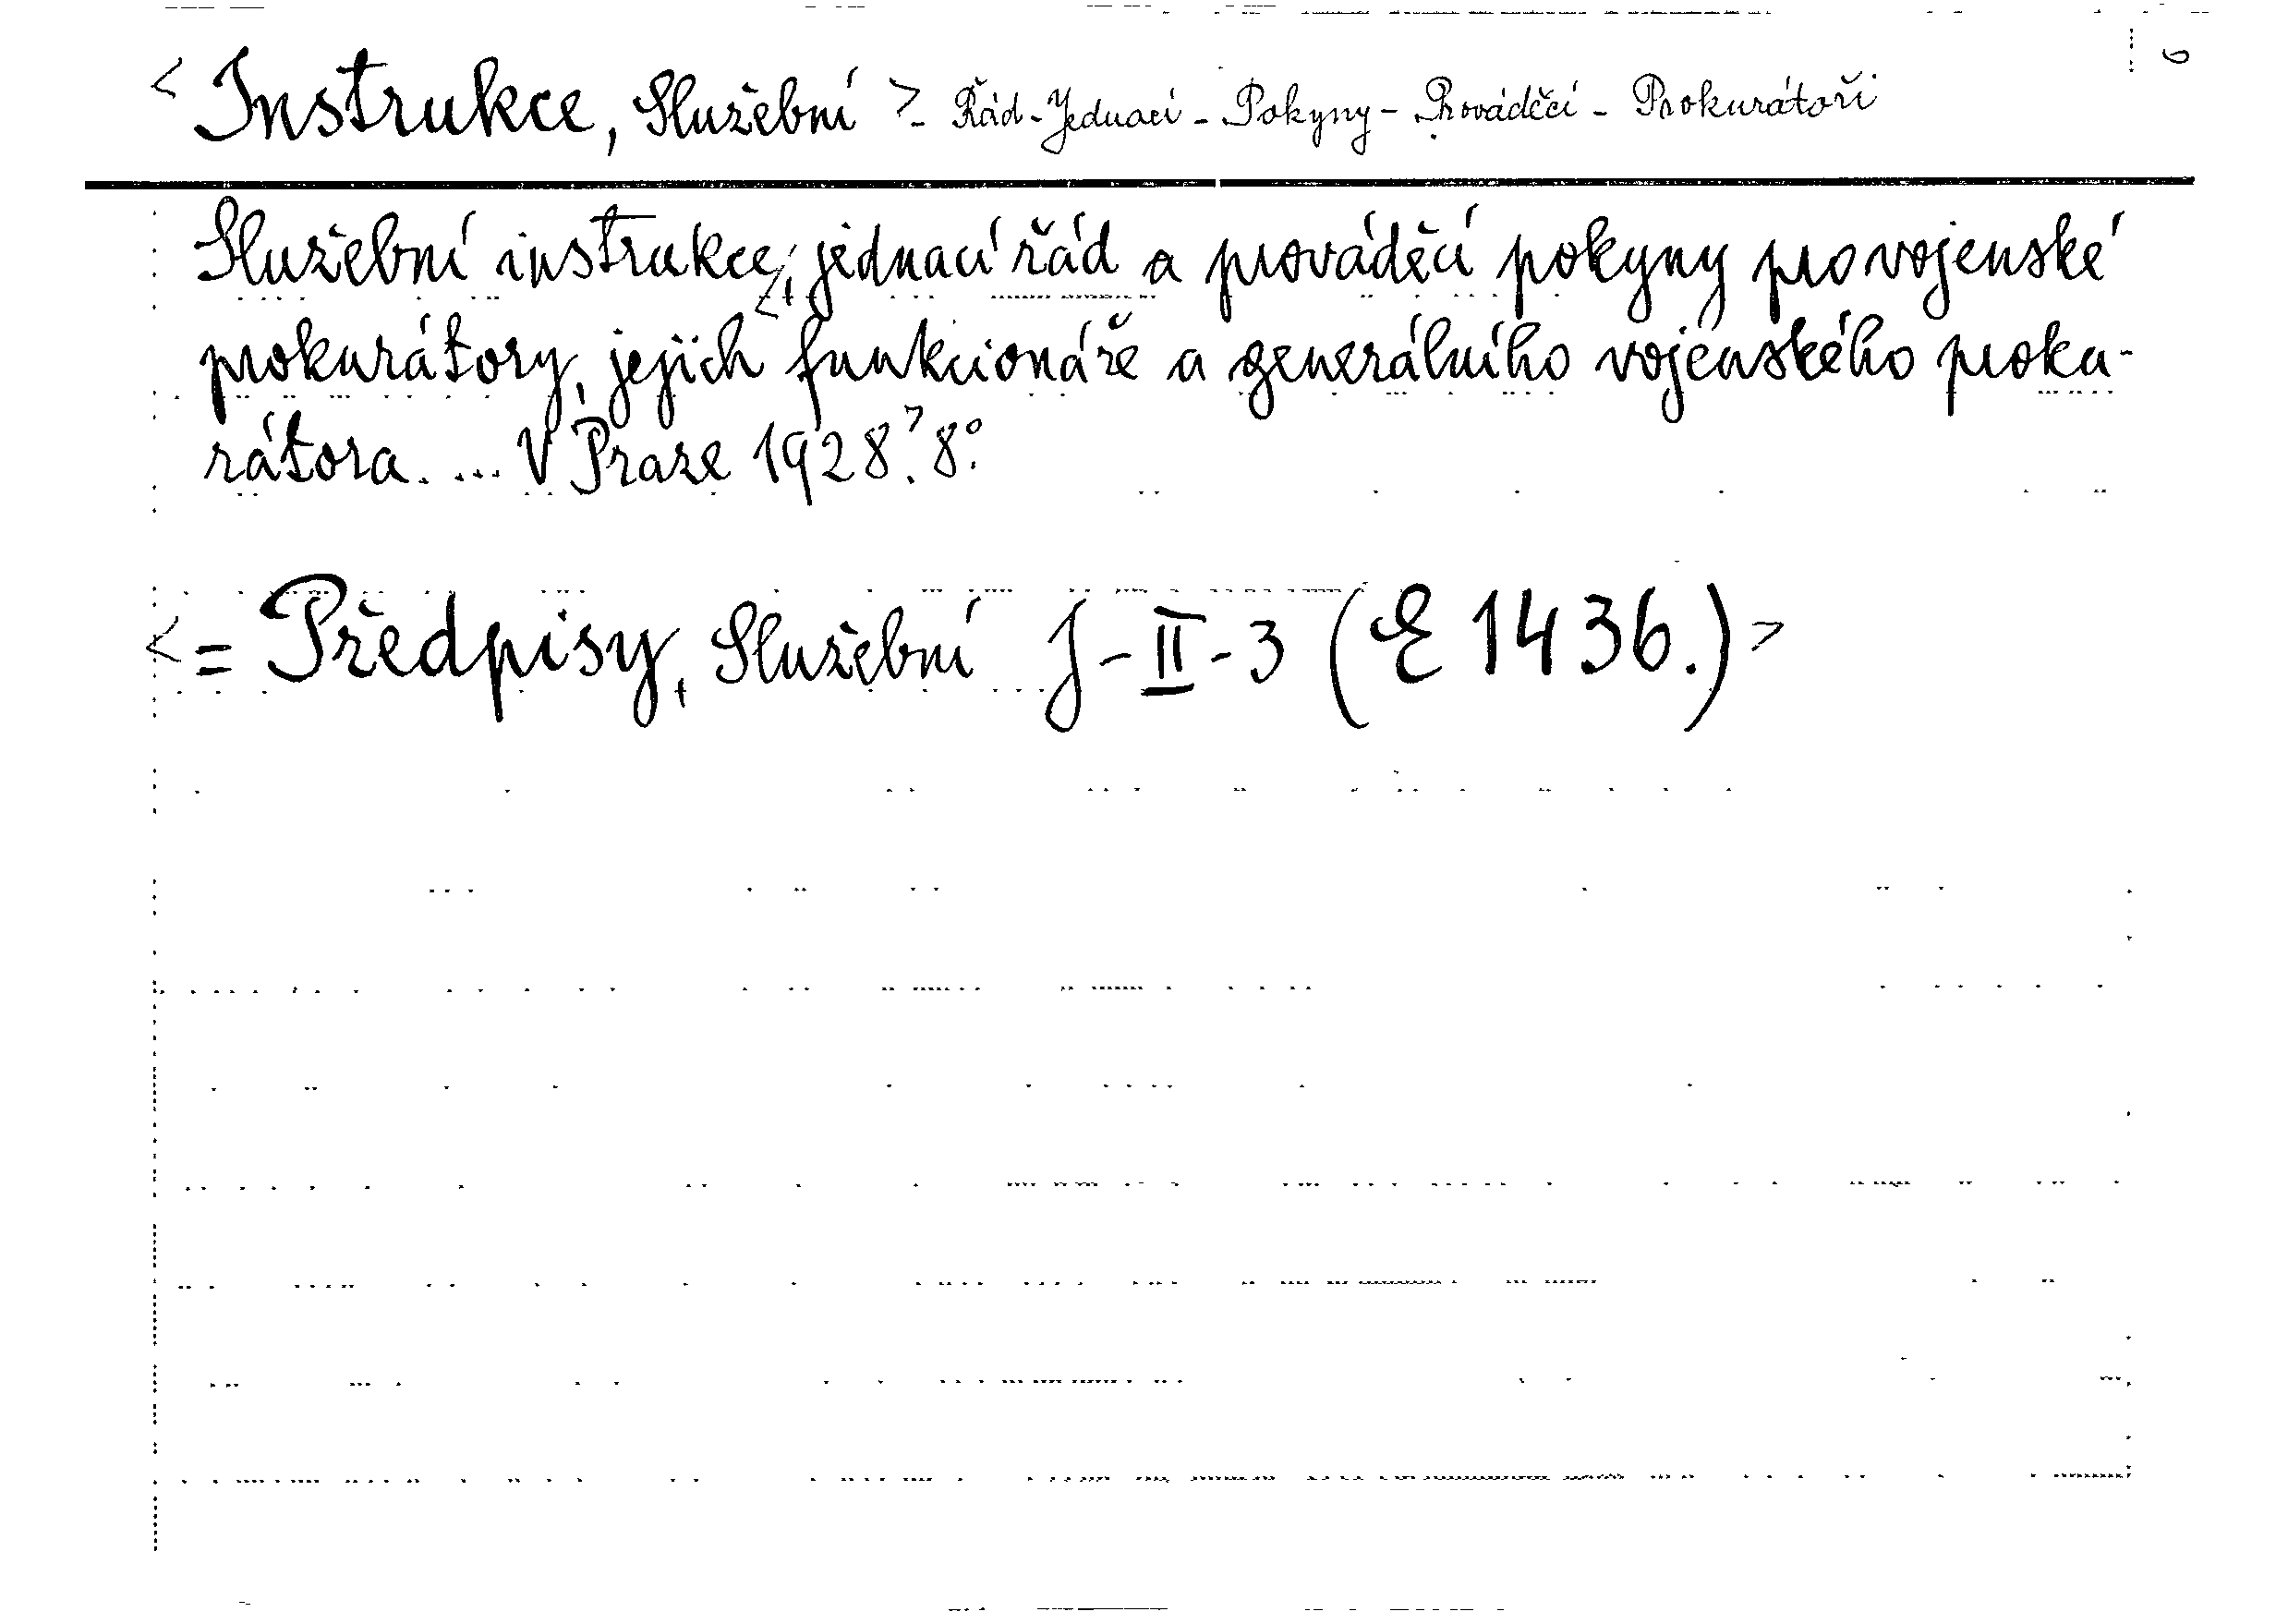 < Instrukce, Služební > - Řád - Jednací - Pokyny - Prováděcí - Prokurátoři
Služební instrukce, jednací řád a prováděcí pokyny pro vojenské
prokurátory, jejich funkcionáře a generálního vojenského proku-
rátora. ... V Praze 1928. 8°.
< = Předpisy, Služební J-II-3 (E 1436.) >